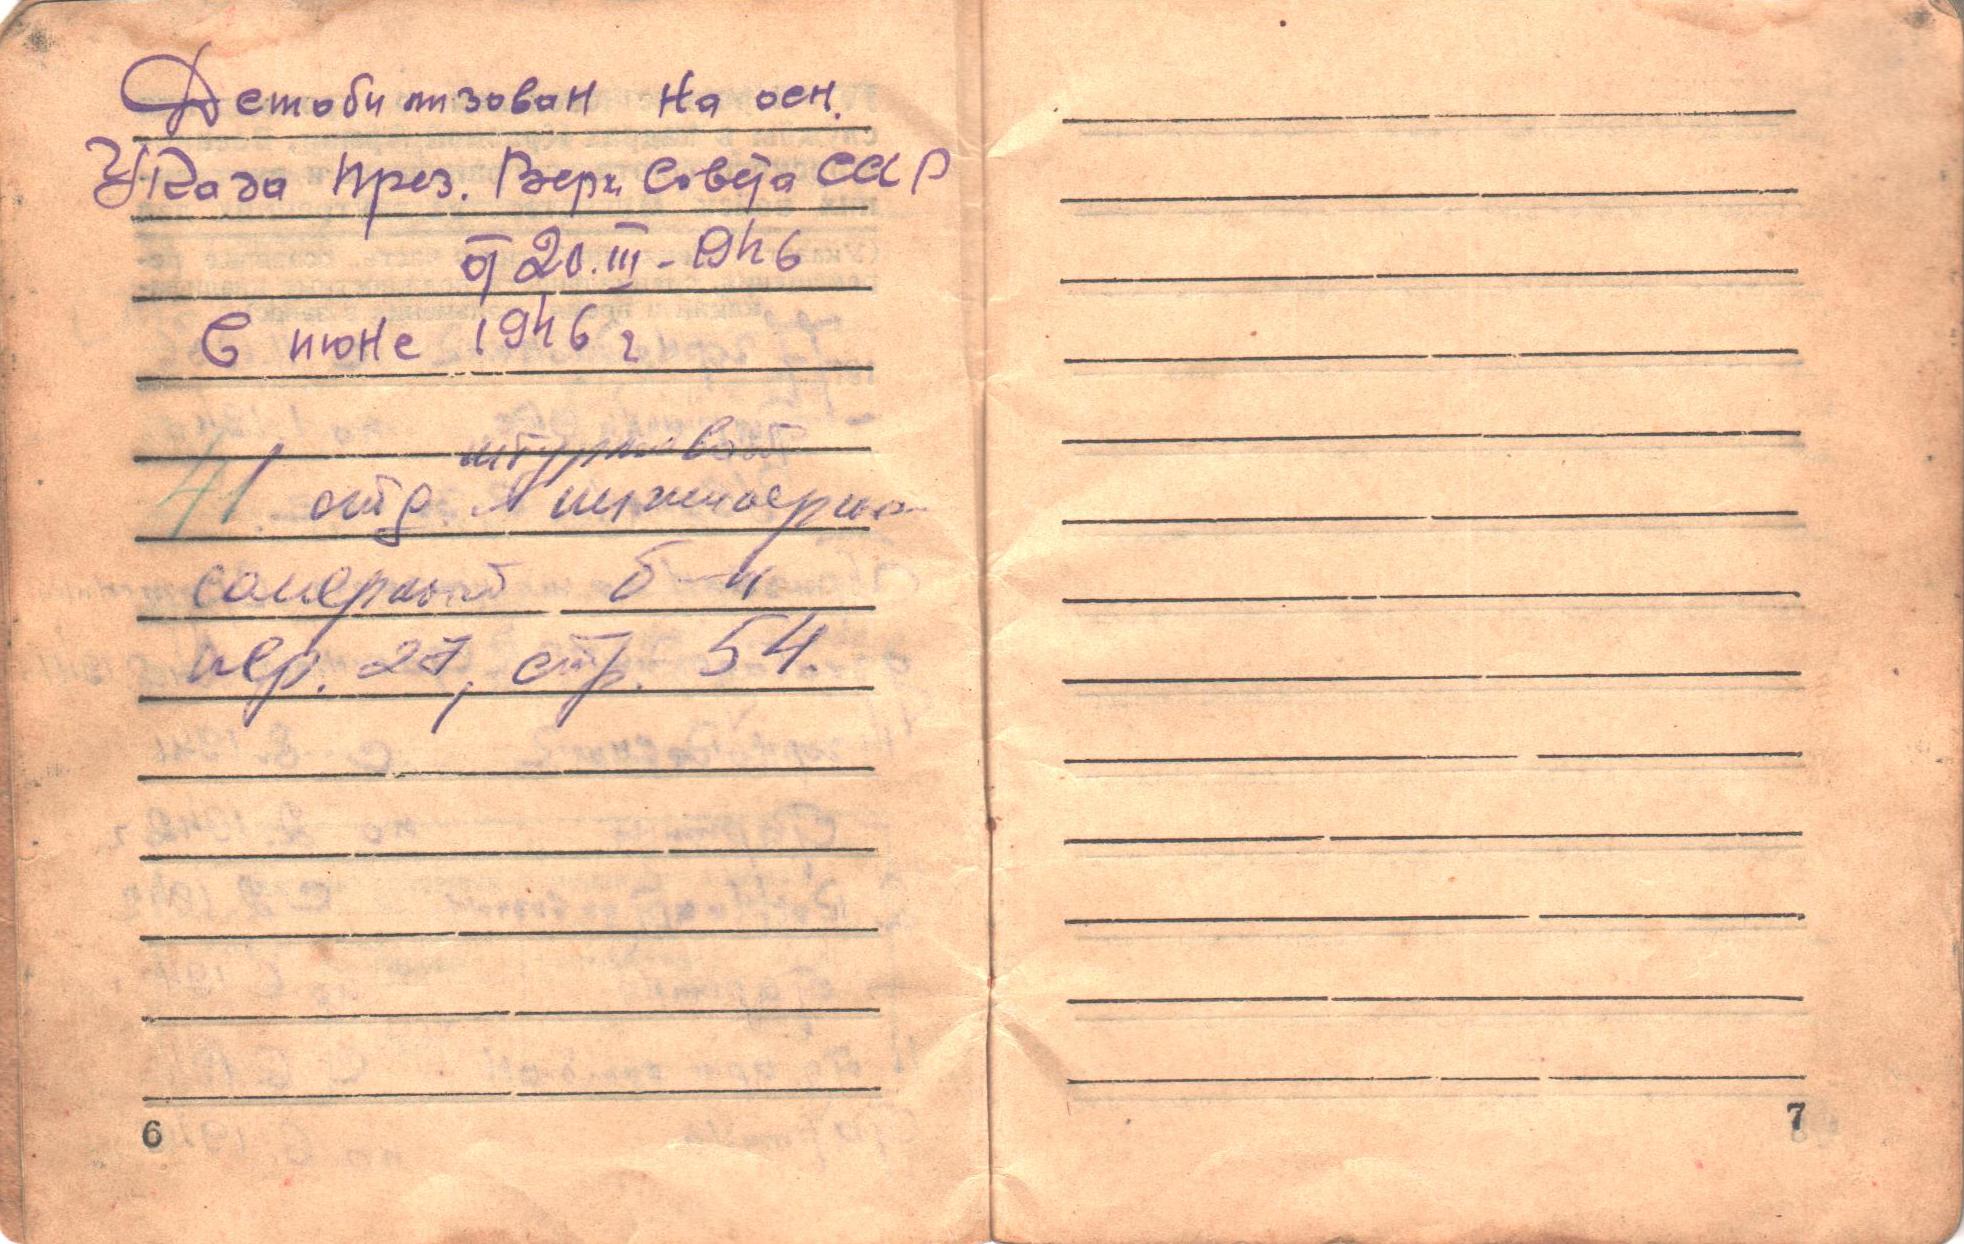 Демобилизован на осн.
Указа През. Верх Совета СССР
от 20.III-1946
В июне 1946 г
штурмовой
41 отд. инженерно
саперный б-н
пер. 27, стр. 54.
6
7